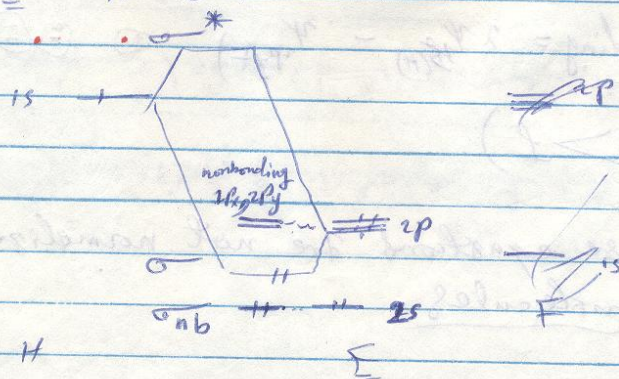 σ*
1s
2p
nonbonding
2Px, 2Py
2p
σ
1s
σnb
2s
F
H